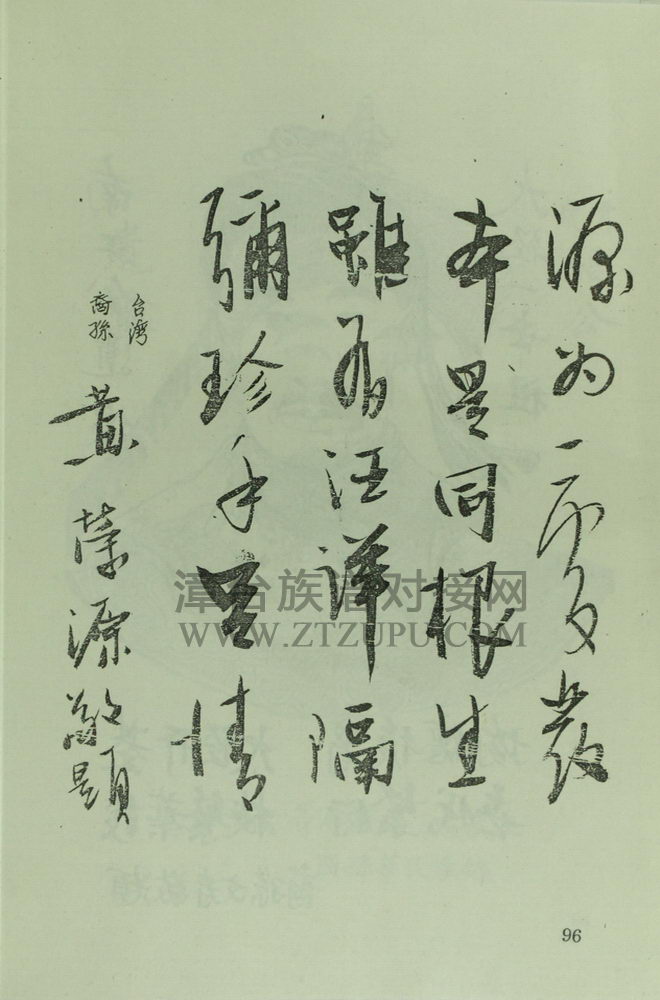 源为一發
本是同根生
雖有汪洋隔
彌珍手足情
台湾
裔孫
黄榮源敬題
漳台族谱对接网
WWW.ZTZUPU.COM
96